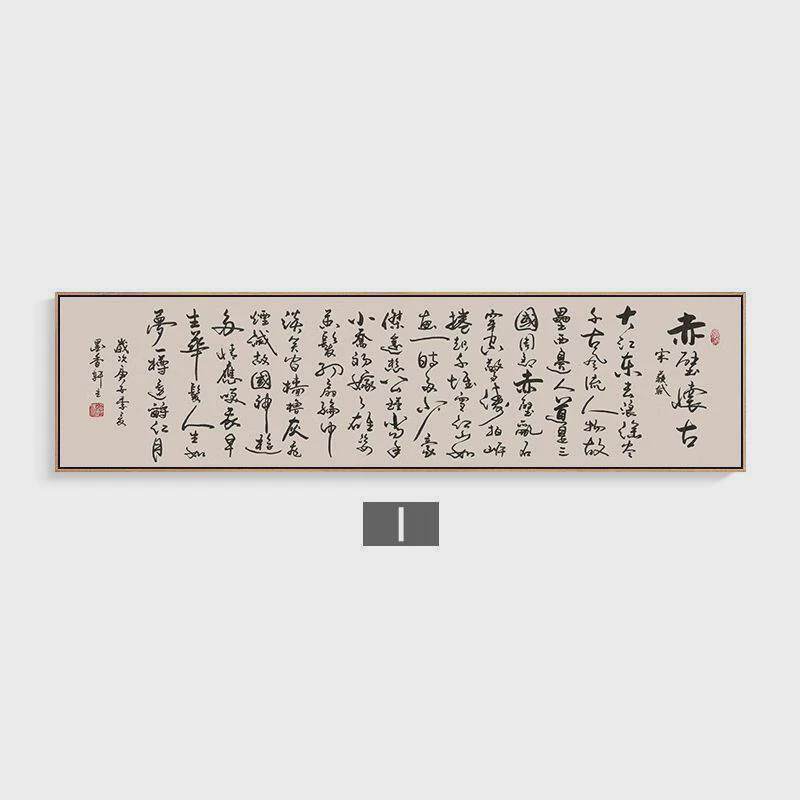 赤壁懷古
宋 蘇軾
大江东去浪淘尽
千古风流人物故
壘西邊人道是三
國周郎赤壁亂石
穿空驚濤拍岸
捲起千堆雪江山如
画一時多少豪
傑遙想公瑾当年
小喬初嫁了雄姿
英發羽扇綸巾
談笑間檣櫓灰飛
煙滅故國神遊
多情應笑我早
生華髮人生如
夢一樽還酹江月
歲次庚子季夏
墨香軒主
I